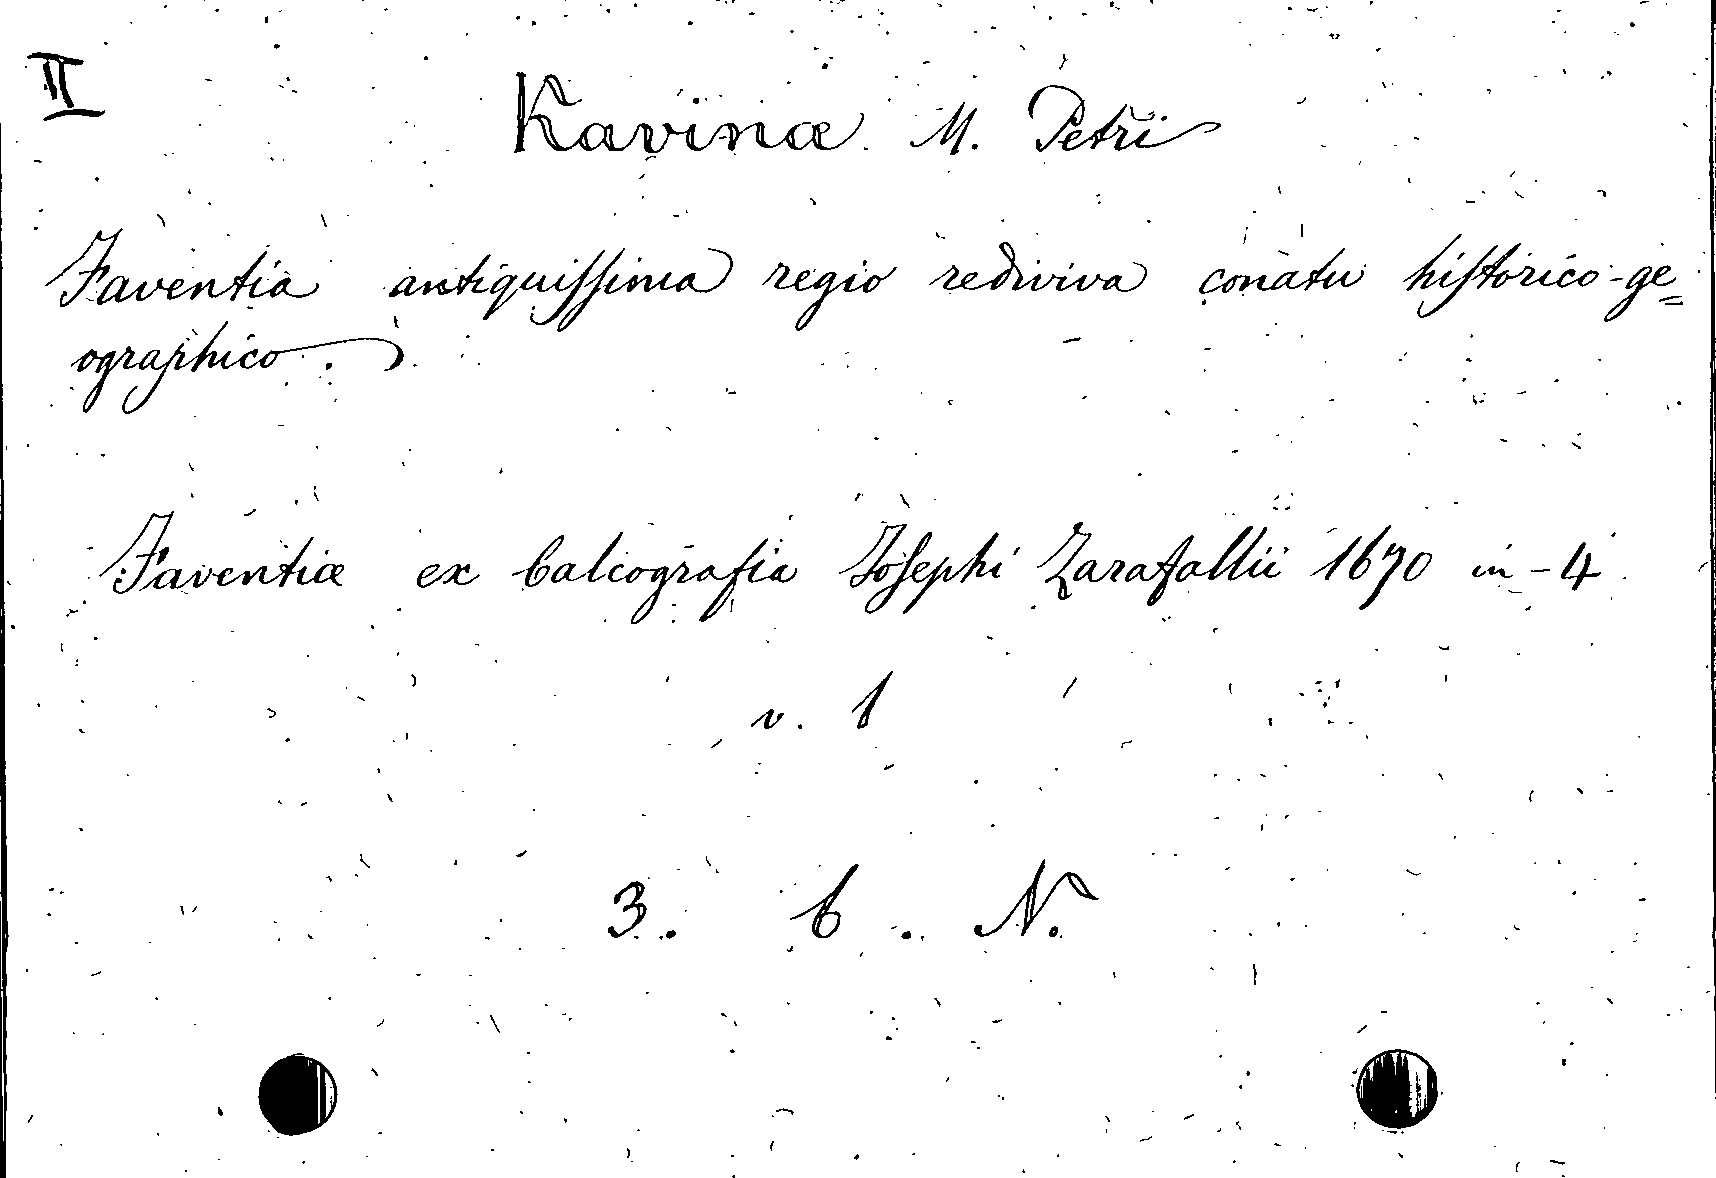 II
Kavinæ M. Petri
Faventia antiquissima regio rediviva conatu historico-ge=
ographico.
Faventiæ ex Calcografia Josephi Zarafallii 1670 in-4
v. 1
3. 6. N.